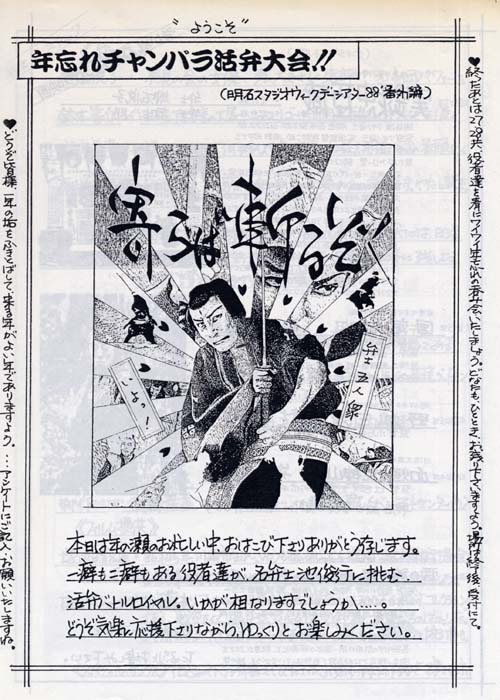 "ようこそ"
年忘れチャンバラ活弁大会!!
(明石スタジオウィークデーシアター88'番外編)
♥終ったあとは27、28共、役者達を肴にワイワイ年忘れの呑み会いたしましょう。どなたも、ひととき、お残り下さいますよう。場所は終了後、受付にて。
寄らば斬るぞ!
弁士五人衆
いよっ!
本日は年の瀬のお忙しい中、おはこび下さりありがとう存じます。
一癖も二癖もある役者達が、名弁士池俊行に挑む‥
活弁バトルロイヤル。いかが相なりますでしょうか‥‥。
どうぞ気楽に応援下さりながら、ゆっくりとお楽しみください。
♥どうぞ皆様、一年の垢をふきとばして、来る年がよい年でありますよう。…アンケートにご記入、お願いいたしますね。